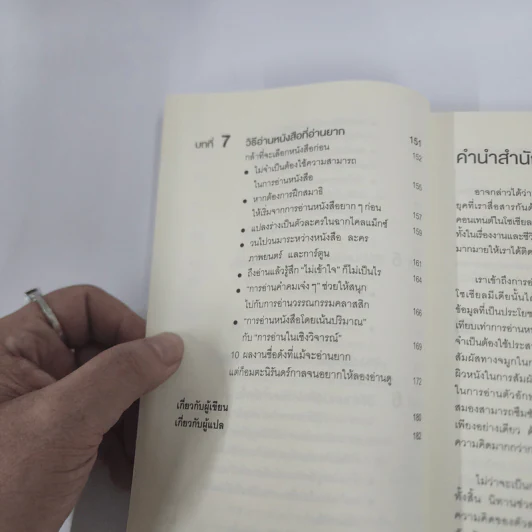 บทที่ 7 วิธีอ่านหนังสือที่อ่านยาก 151
กล้าที่จะเลือกหนังสือก่อน 152
• ไม่จำเป็นต้องใช้ความสามารถ
ในการอ่านหนังสือ
• หากต้องการฝึกสมาธิ 156
ให้เริ่มจากการอ่านหนังสือยาก ๆ ก่อน
• แปลงร่างเป็นตัวละครในฉากไคลแม็กซ์ 157
• วนไปวนมาระหว่างหนังสือ ละคร 159
ภาพยนตร์ และการ์ตูน
• ถึงอ่านแล้วรู้สึก "ไม่เข้าใจ" ก็ไม่เป็นไร 161
• "การอ่านคำคมเจ๋ง ๆ" ช่วยให้สนุก 164
ไปกับการอ่านวรรณกรรมคลาสสิก
• "การอ่านหนังสือโดยเน้นปริมาณ" 166
กับ "การอ่านในเชิงวิจารณ์"
10 ผลงานชื่อดังที่แม้จะอ่านยาก 169
แต่ก็อมตะนิรันดร์กาลจนอยากให้ลองอ่านดู 172
เกี่ยวกับผู้เขียน 180
เกี่ยวกับผู้แปล 182
คำนำสำนั
อาจกล่าวได้ว่า
ยุคที่เราสื่อสารกันด้
คอนเทนต์ในโซเชีย
ทั้งในเรื่องงานและชีวิ
มากมายให้เราได้ติด
เราเข้าถึงการอ่
โซเชียลมีเดียนั้นได้
ข้อมูลที่เป็นประโย
เทียบเท่าการอ่านห
จำเป็นต้องใช้ประส
สัมผัสทางจมูกในก
ผิวหนังในการสัมผั
ในการอ่านตัวอักษ
สมองสามารถซึมซั
เพียงอย่างเดียว
ความคิดมากกว่า
ไม่ว่าจะเป็นก
ทั้งสิ้น นิทานช่วย
ความคิดของตัว